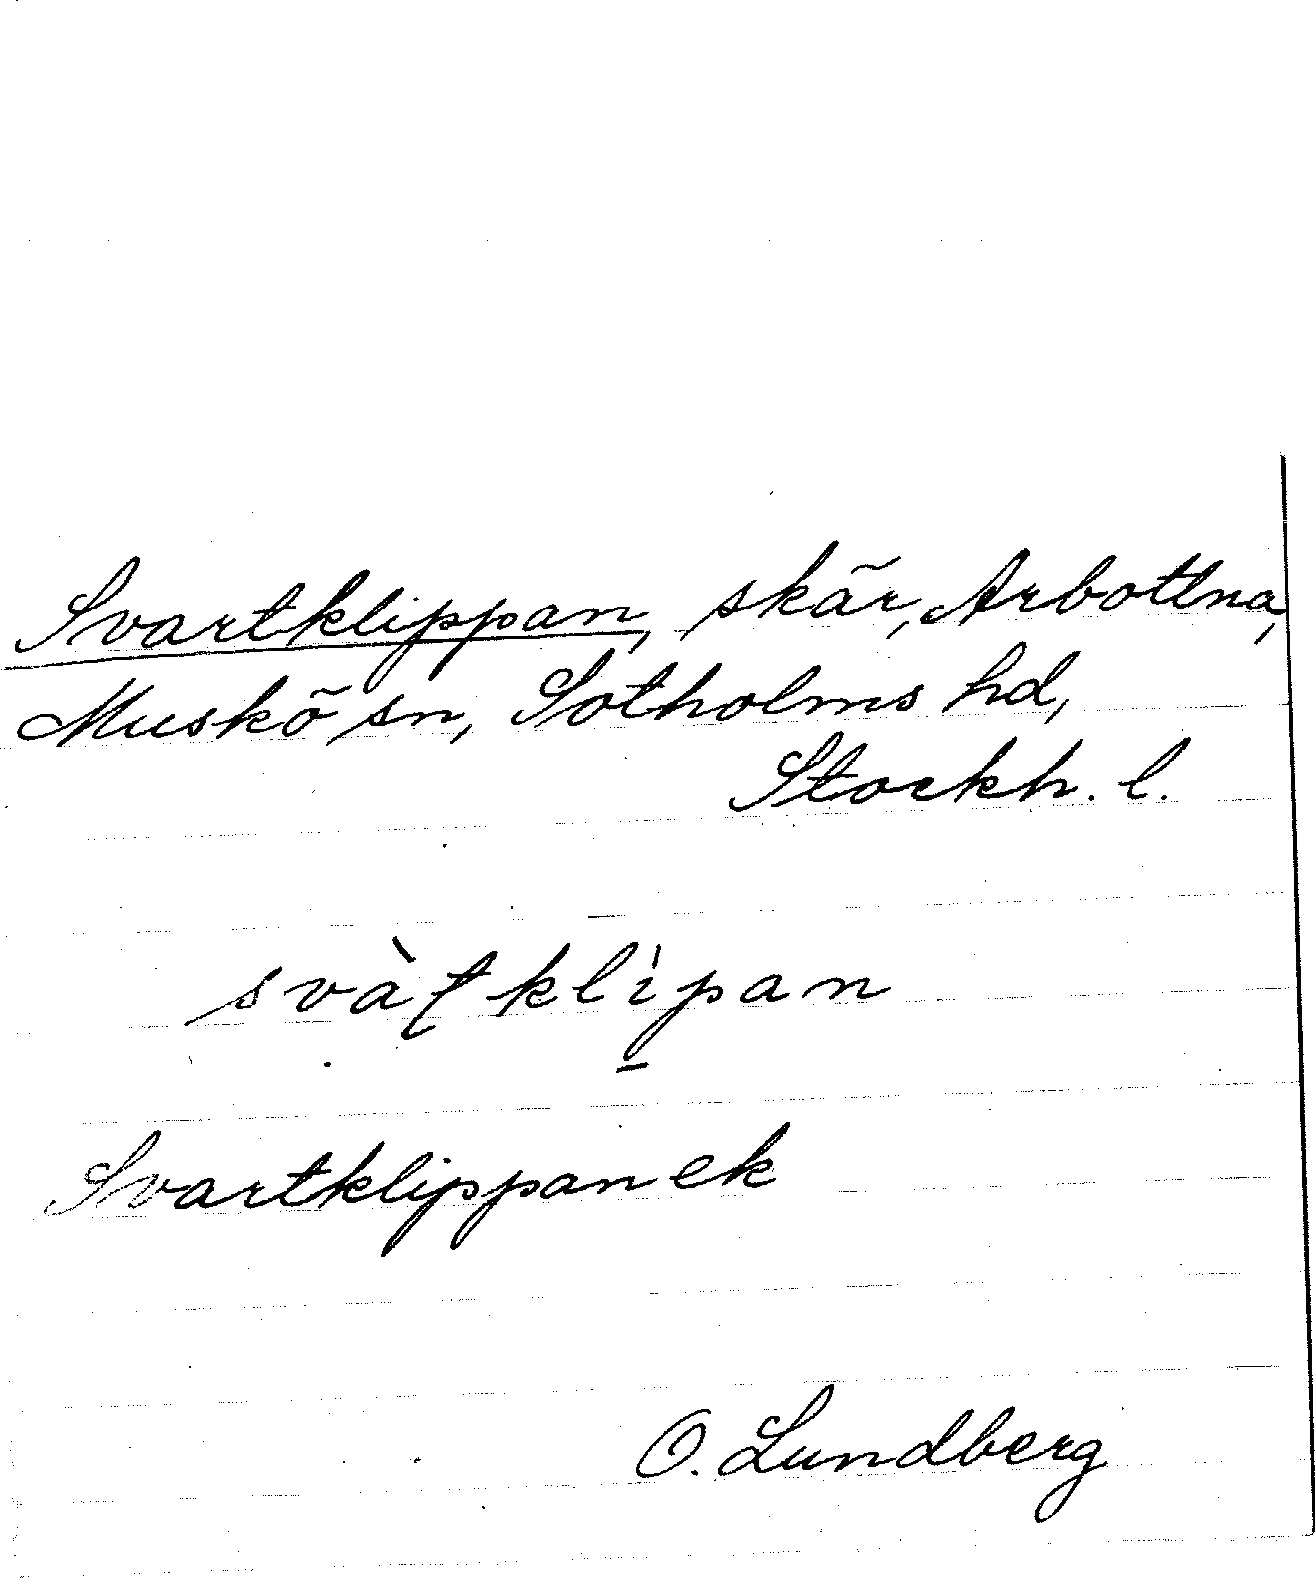 Svartklippan, skär, Arbottna,
Muskö sn, Sotholms hd,
Stockh. l.
svàʈklìp̠an
Svartklippan ek
O. Lundberg